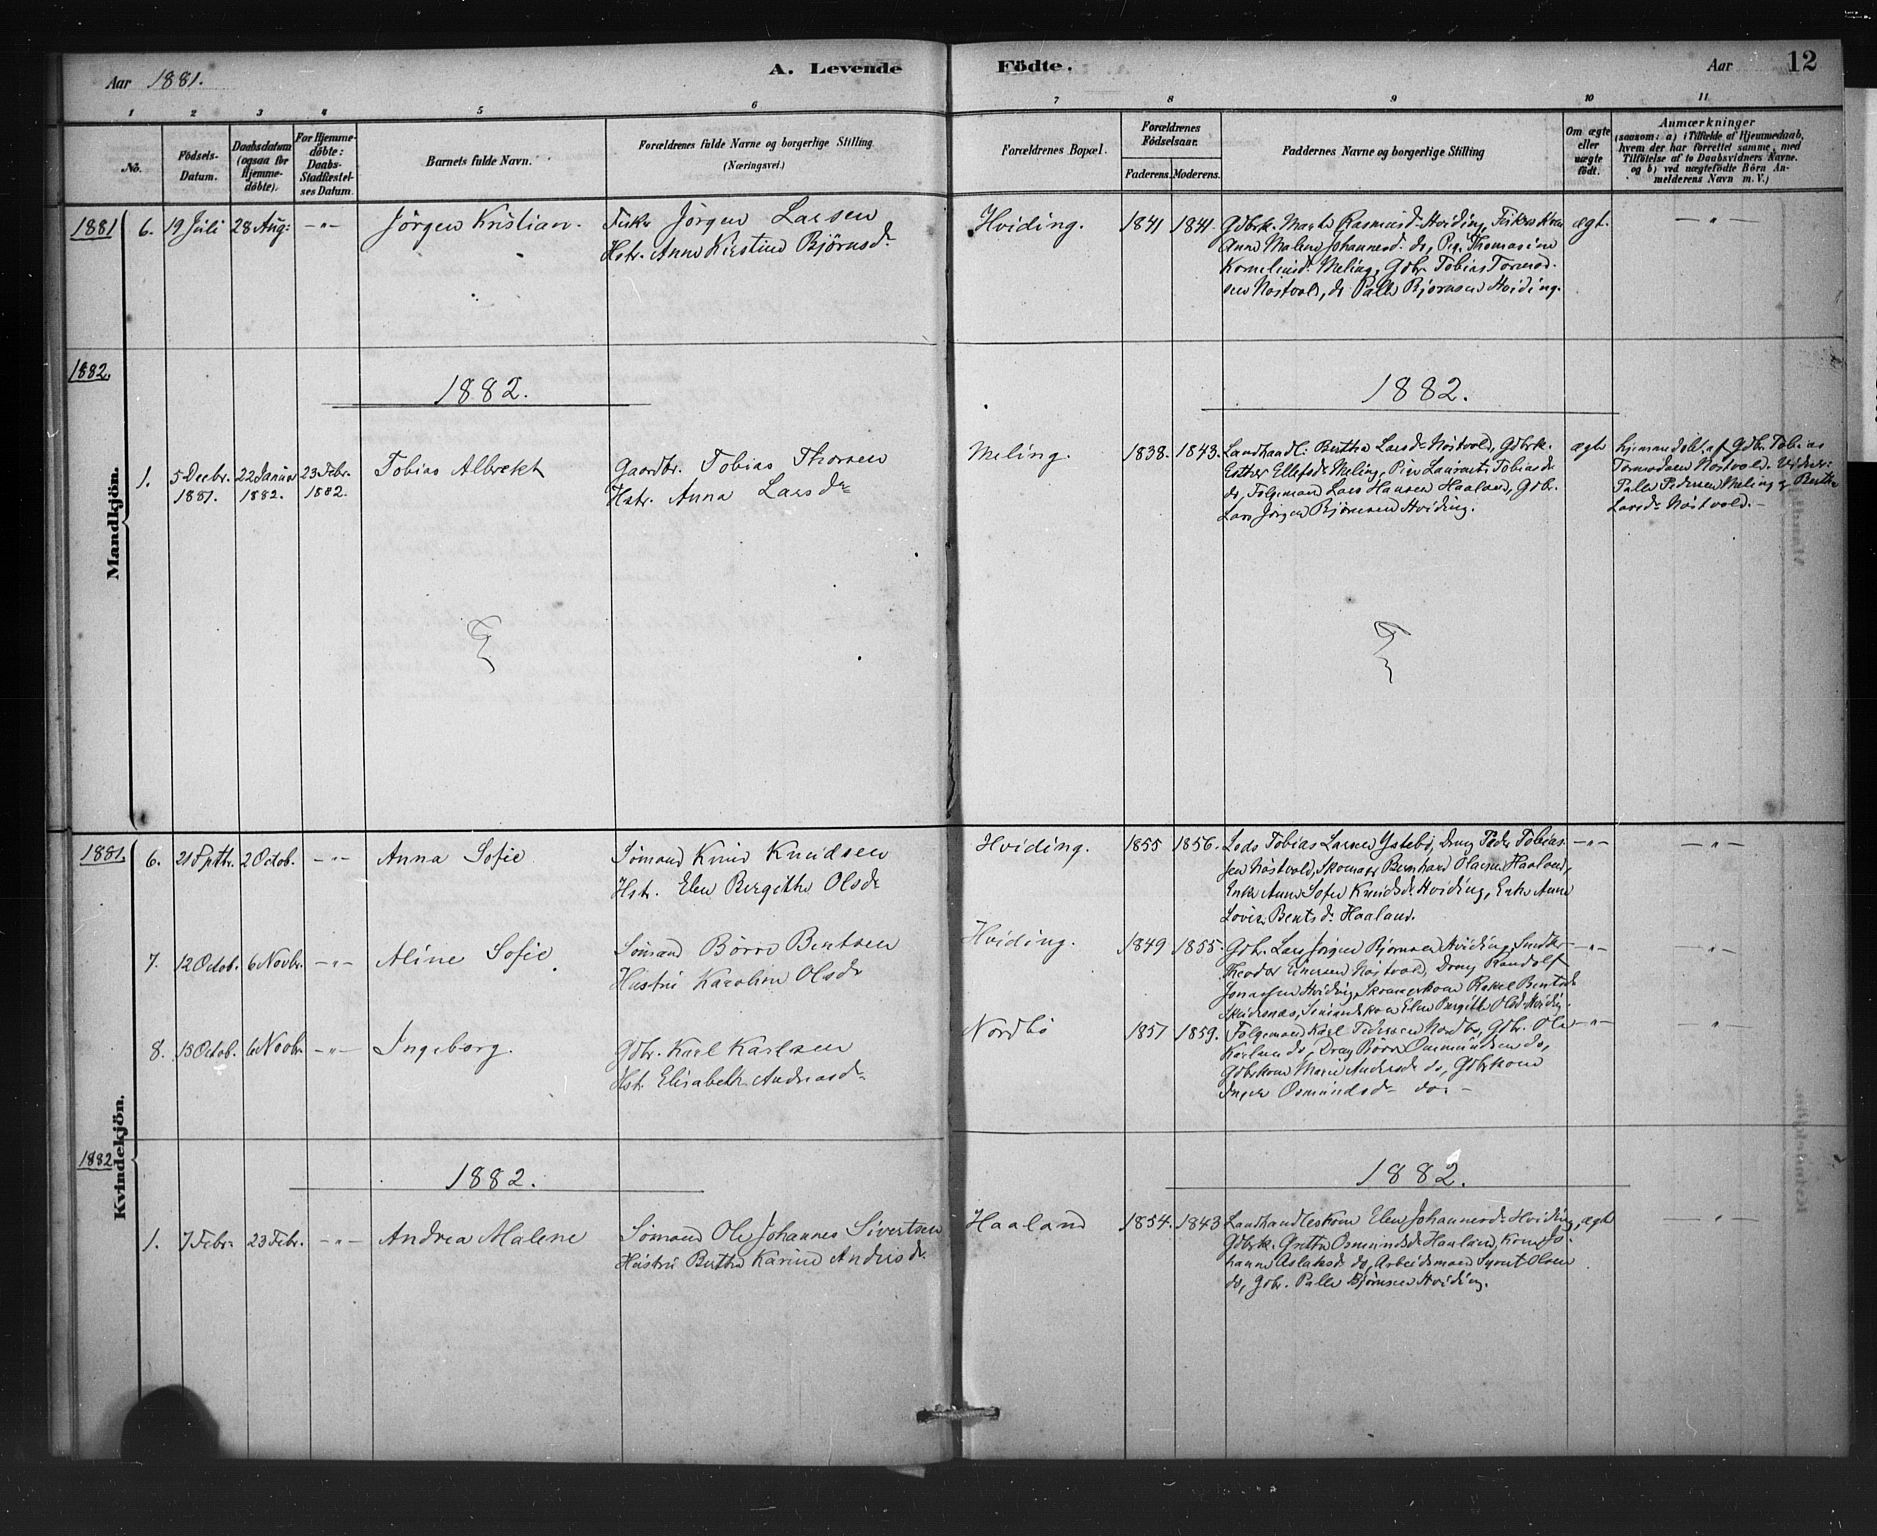 Aar 1881.
A. Levende
Födte.
Aar
12
1 2 3 4 5 6 7 8 9 10 11
No.
Födsels-
Datum.
Daabsdatum
(ogsaa for
Hjemme-
döbte).
For Hjemme-
döbte:
Daabs-
Stadfæstel-
ses Datum.
Barnets fulde Navn.
Forældrenes fulde Navne og borgerlige Stilling
(Næringsvei.)
Forældrenes Bopæl.
Forældrenes
Födselsaar.
Faderens. Moderens.
Faddernes Navne og borgerlige Stilling
Om ægte
eller
uægte
födt.
Anmærkninger
(saasom: a) i Tilfælde af Hjemmedaab,
hvem der har forrettet samme, med
Tilföielse af to Daabsvidners Navne.
og b) ved uægtefödte Börn An-
melderens Navn m. V.)
Mandkjön.
1881
6. 19 Juli 28 Aug: -"- Jörgen Kristian.
Fisker Jörgen Larsen
Hstr. Anne Kirstine Bjørnsd.
Hviding. 1841 1841.
Gdbrk. Marta Rasmusd. Hviding, Fiskerkone
Anne Malene Johannesd. do, Pige Thomasine
Kornelius d. Meling, Gdbr. Tobias Tormod-
sen Nöstvold, do Palle Bjørnsen Hviding.
ægt. -"-
1882.
1882.
1882.
1. 5 Decbr. 22 Januar 23 Febr. Tobias Albrekt
1881. 1882. 1882.
Gaardbr. Tobias Thorsen
Hstr. Anna Larsd.
Meling. 1838. 1843.
Landhandl: Bertha Larsd. Nöstvold, Gdbrk.
Esther Ellefsd. Meling, Pige Laurents Tobiasd.
do, Følgemand Lars Hansen Haaland, Gdbr.
Lars Jörgen Bjørnsen Hviding.
ægte
hjemmedöbt af Gdbr. Tobias
Tormodsen Nöstvold. Vidner:
Palle Pedersen Meling og Berthe
Larsd. Nöstvold.-
Kvindekjön.
1881.
6. 21 Septbr. 2 Octob. -"- Anna Sofie
Sömand Knud Knudsen
Hstr. Elen Bergitha Olsd.
Hviding. 1855 1856.
Lods Tobias Larsen Ystebö, Dreng Peder Tobias-
sen Nöstvold, Skomager Bernhard Olausen Haaland,
Enke Anne Sofie Knudsd. Hviding, Enke Anne
Lovise Bentsd. Haaland.
-"- -"-
7. 12 Octob. 6 Novbr. -"- Aline Sofie
Sömand Börre Bentsen
Hustru Karoline Olsd.
Hviding. 1849 1855.
Gdbr. Lars Jörgen Bjørnsen Hviding,
Theodor Nöstvold, Dreng Randolf
Jonassen Hviding, Skomagerkone Rakel Bentsd.
Skudesnæs, Sömandskone Elen Bergitha Olsd. Hviding.
-"- -"-
8. 15 Octob. 6 Novbr. -"- Ingeborg.
Gdbr. Karl Karlsen
Hstr. Elisabeth Andreasd.
Nordbö 1857 1859.
Følgemand Karl Pedersen Nordbö, Gdbr. Ole
Karlsen do, Dreng Börre Osmundsen do,
Gdbrkone Marie Andersd. do, Gdbrkone
Inger Osmundsd. do.-
-"- "-
1882
1882.
1882.
1. 7 Febr. 23 Febr. -"- Andrea Malene
Sömand Ole Johannes Sivertsen
Hustru Berthe Karine Andersd.
Haaland 1854. 1843
Landhandleskone Elen Johannesd. Hviding,
Gdbrk. Grethe Osmundsd. Haaland, Kone Jo-
hanne Aslaksd. do, Arbeidsmand Syvert Olsen
do, Gdbr. Palle Bjørnsen Hviding.
ægte -"-